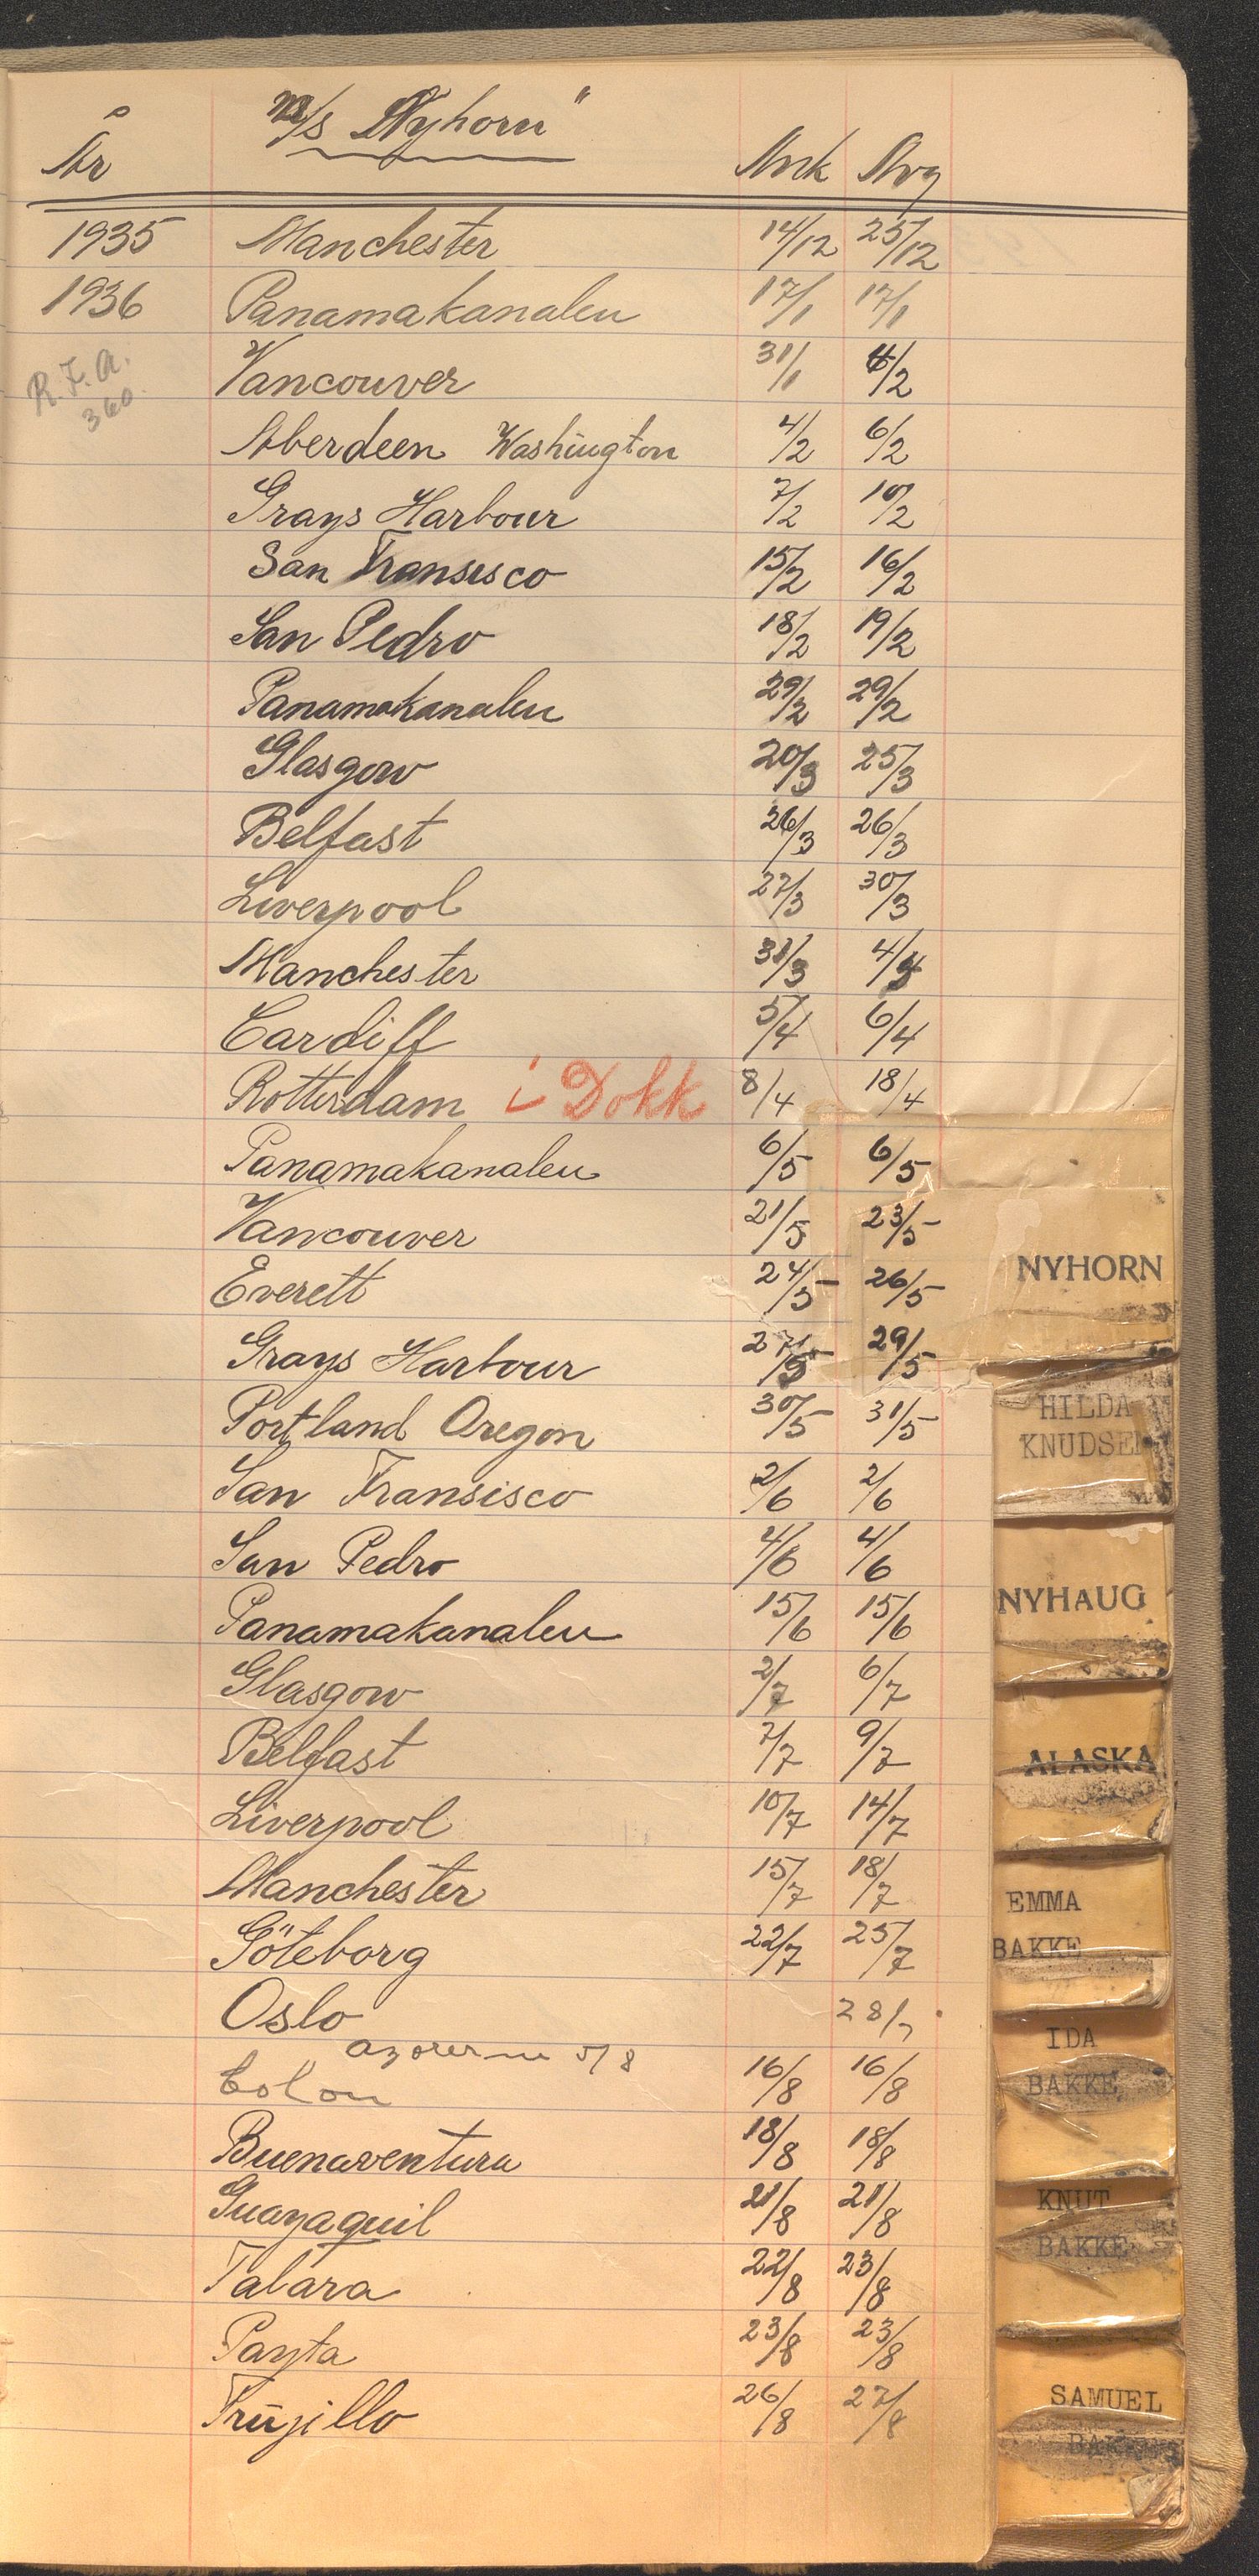 M/S "Nyhorn"
År Ank Avg
1935 Manchester 14/12 25/12
1936 Panamakanalen 17/1 17/1
R.F.A. 360. Vancouver 31/1 4/2
Aberdeen Washington 4/2 6/2
Grays Harbour 7/2 10/2
San Fransisco 15/2 16/2
San Pedro 18/2 19/2
Panamakanalen 29/2 29/2
Glasgow 20/3 25/3
Belfast 26/3 26/3
Liverpool 27/3 30/3
Manchester 31/3 4/4
Cardiff 5/4 6/4
Rotterdam i Dokk 8/4 18/4
Panamakanalen 6/5 6/5
Vancouver 21/5 23/5
Everett 24/5 26/5
Grays Harbour 27/5 29/5
Portland Oregon 30/5 31/5
San Fransisco 2/6 2/6
San Pedro 4/6 4/6
Panamakanalen 15/6 15/6
Glasgow 2/7 6/7
Belfast 7/7 9/7
Liverpool 10/7 14/7
Manchester 15/7 18/7
Göteborg 22/7 25/7
Oslo 28/7
Azorerne 5/8
Colon 16/8 16/8
Buenaventura 18/8 18/8
Guayaquil 21/8 21/8
Talara 22/8 23/8
Payta 23/8 23/8
Trujillo 26/8 27/8
NYHORN
HILDA
KNUDSEN
NYHAUG
ALASKA
EMMA
BAKKE
IDA
BAKKE
KNUT
BAKKE
SAMUEL
BAKKE